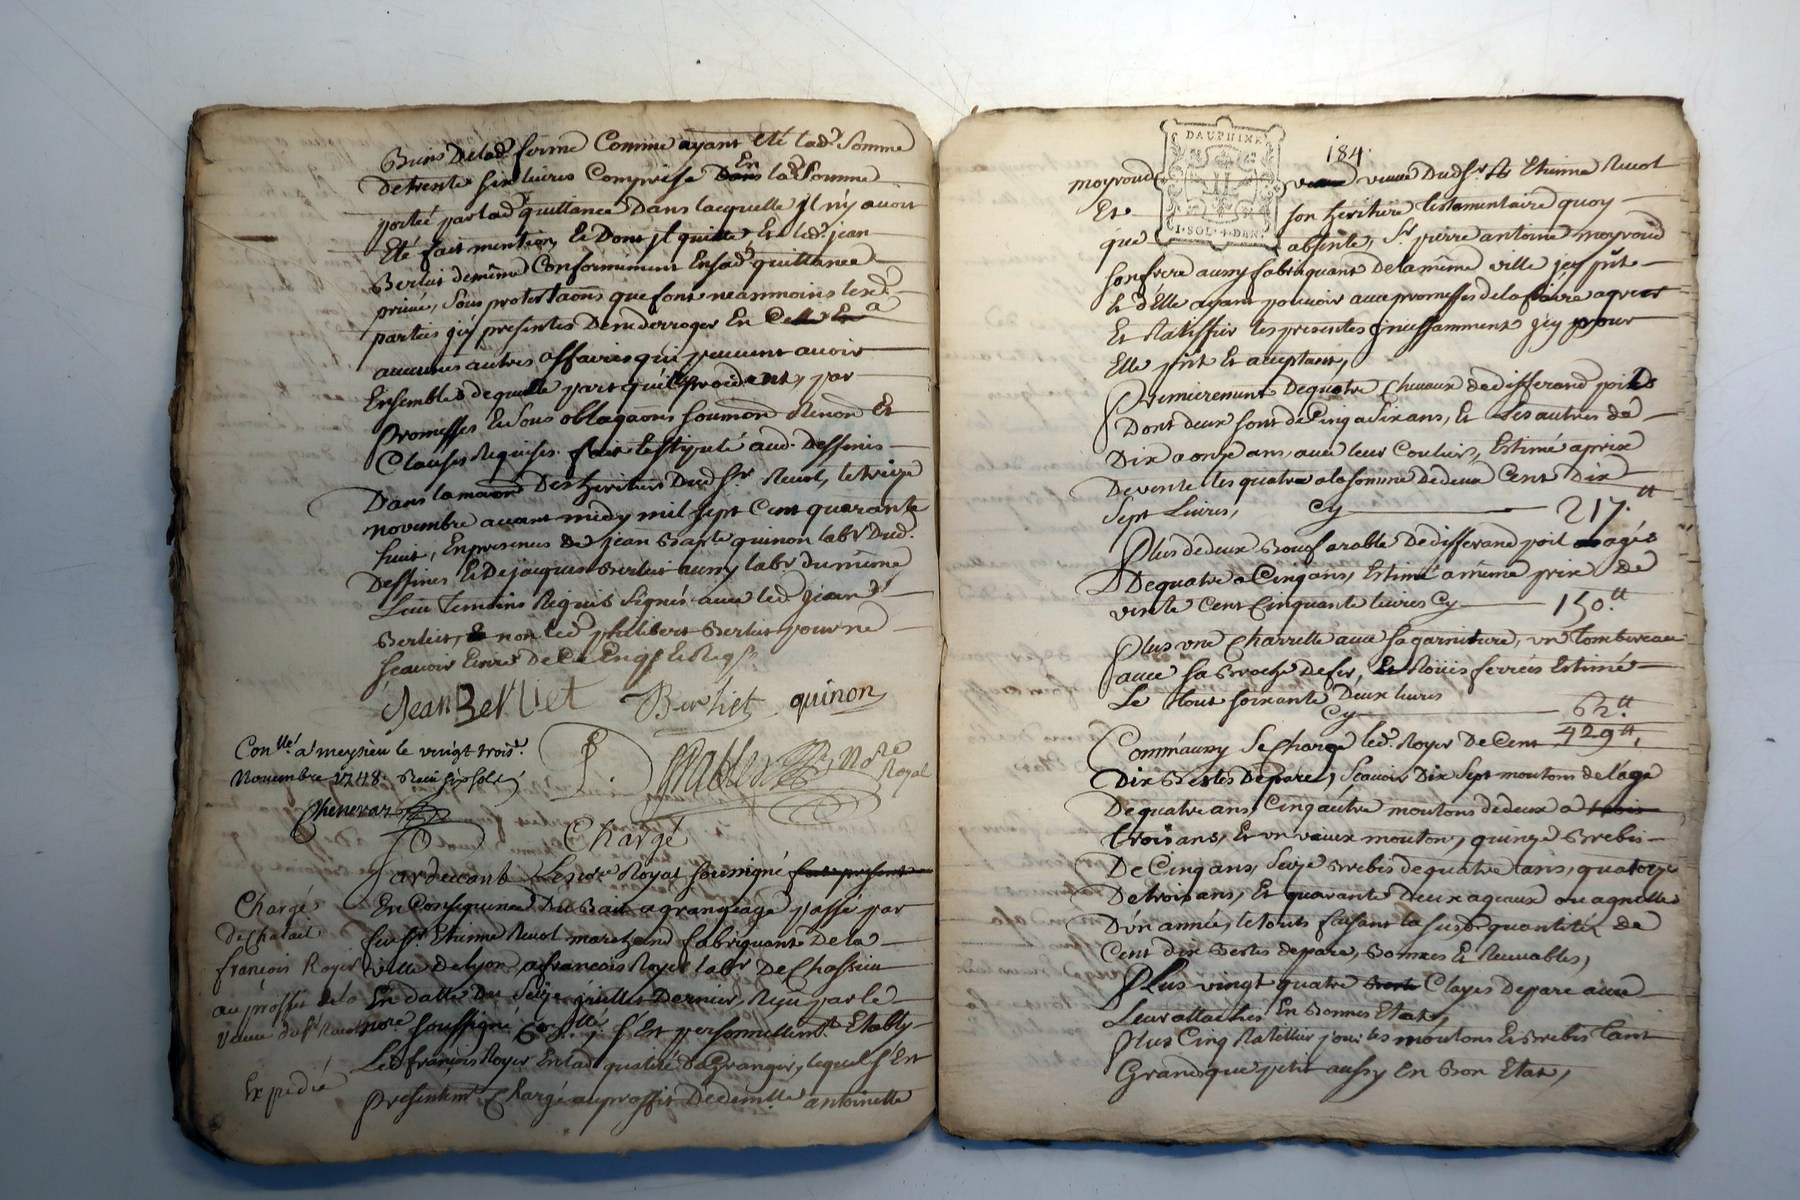 Biens De lad.e ferme Comme ayant été lad.e Somme
De trente six livres Comprise En lad.e Somme
portée par lad.e quittance Dans laquelle il n'y avoit
Eté fait mention, Et Dont jl quitte Et led. jean
Berliet de même Conformément En sad.e quittance
privée, Sous protestaons que font neanmoins lesd.
parties jcy presentes De ne derroger En
aucunes autres affaires qui peuvent avoir
Ensembles de quelle part qu'ils proviennent, par
Promesses Et Sous obligaons soumon Renon Et
Clauses Requises. fait et stipulé aud. Dessines
Dans la maison Des heritiers Dud. Sr. Revol, le treize
novembre avant midy mil sept Cent quarante
huit, En presences de jean Bapte quinon labr Dud.
Dessines Et De jacques Berliet aussy labr du même
Lieu temoins Requis signés avec led. jean
Berliet, non led. philibert Berliet pour ne
sçavoir Ecrire De Ce Enqs Et Reqs
Jean Berliet Berliet quinon
Con.llé a meysieu le vingt trois
Novembre 1748. Reçu six sols
Nore Royal
Chenevas
Chargé
Pardevant Le nore Royal soussigné
En Consequence Du Bail a grangeage passé par
feu Sr. Etienne Revol marchand fabriquant De la
ville De lyon, a francois Royer labr De Chassieu
En datte Du Seize juillet Dernier, Reçu par le
nore soussigné Con.llé s'Est personnellemt. Etably
Led. françois Royer En lad. qualité De Granger, lequel s'Est
presentemt. Chargé au proffit De demlle antoinette
Chargé
De Chatail
françois Royer
au proffit de la
veuve du Sr. Revol
Expedié
DAUPHINE
1. SOL. 4. DEN.
184.
moyroud veuve Dud. Sr. Etienne Revol
Et son heritiere testamentaire quoy
que absente, Sr. pierre antoine moyroud
son frere aussy fabriquant De la même ville jcy pnt
Et d'Elle ayant pouvoir avec promesses de la faire agreer
Et Ratiffier les presentes incessamment jcy pour
Elle pnt Et acceptant,
Premierement De quatre Chevaux de differand poils
Dont deux sont de Cinq a Six ans, Et Les autres de
Dix a onze ans, avec leur Coulier, Estimé a prix
De vente les quatre a la somme De deux Cent Dix
Sept Livres, Cy 217.tt
Plus de deux Bouf arable De differand poil agés
De quatre a Cinq ans, Estimé a même prix De
vente Cent Cinquante livres Cy 150.tt
Plus une Charrette avec sa garniture, un tombereau
avec sa Broche De fer, Roües ferrées Estimé
Le tout soixante Deux livres
Cy 62.tt
429tt,
Comm'aussy Se Charge led. Royer De Cent
Dix Bestes De pare, Sçavoir Dix Sept moutons de l'age
De quatre ans, Cinq autre moutons de deux a
trois ans, Et un vieux mouton, quinze Brebis
De Cinq ans, Seize Brebis de quatre ans, quatorze
De trois ans, Et quarante Deux agneaux ou agnelles
D'un année, le tout faisant la susd.e quantité de
Cent dix Bestes de pare, Bonnes Et Recevables,
Plus vingt quatre Clayes De pare avec
Leur attaches En Bonnes Etat,
Plus Cinq Ratellier pour les moutons Et Brebis tant
Grand que petit aussy En Bon Etat,